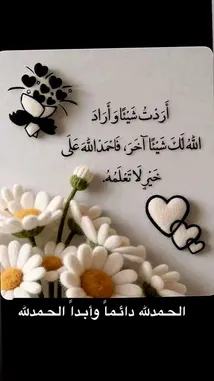 أَرَدْتُ شَيْئًا وَأَرَادَ
اللهُ لَكَ شَيْئًا آخَرَ، فَاحْمَدُ اللهَ عَلَى
خَيْرٍ لَا تَعْلَمُهُ.
الحمدلله دائماً وأبداً الحمدلله